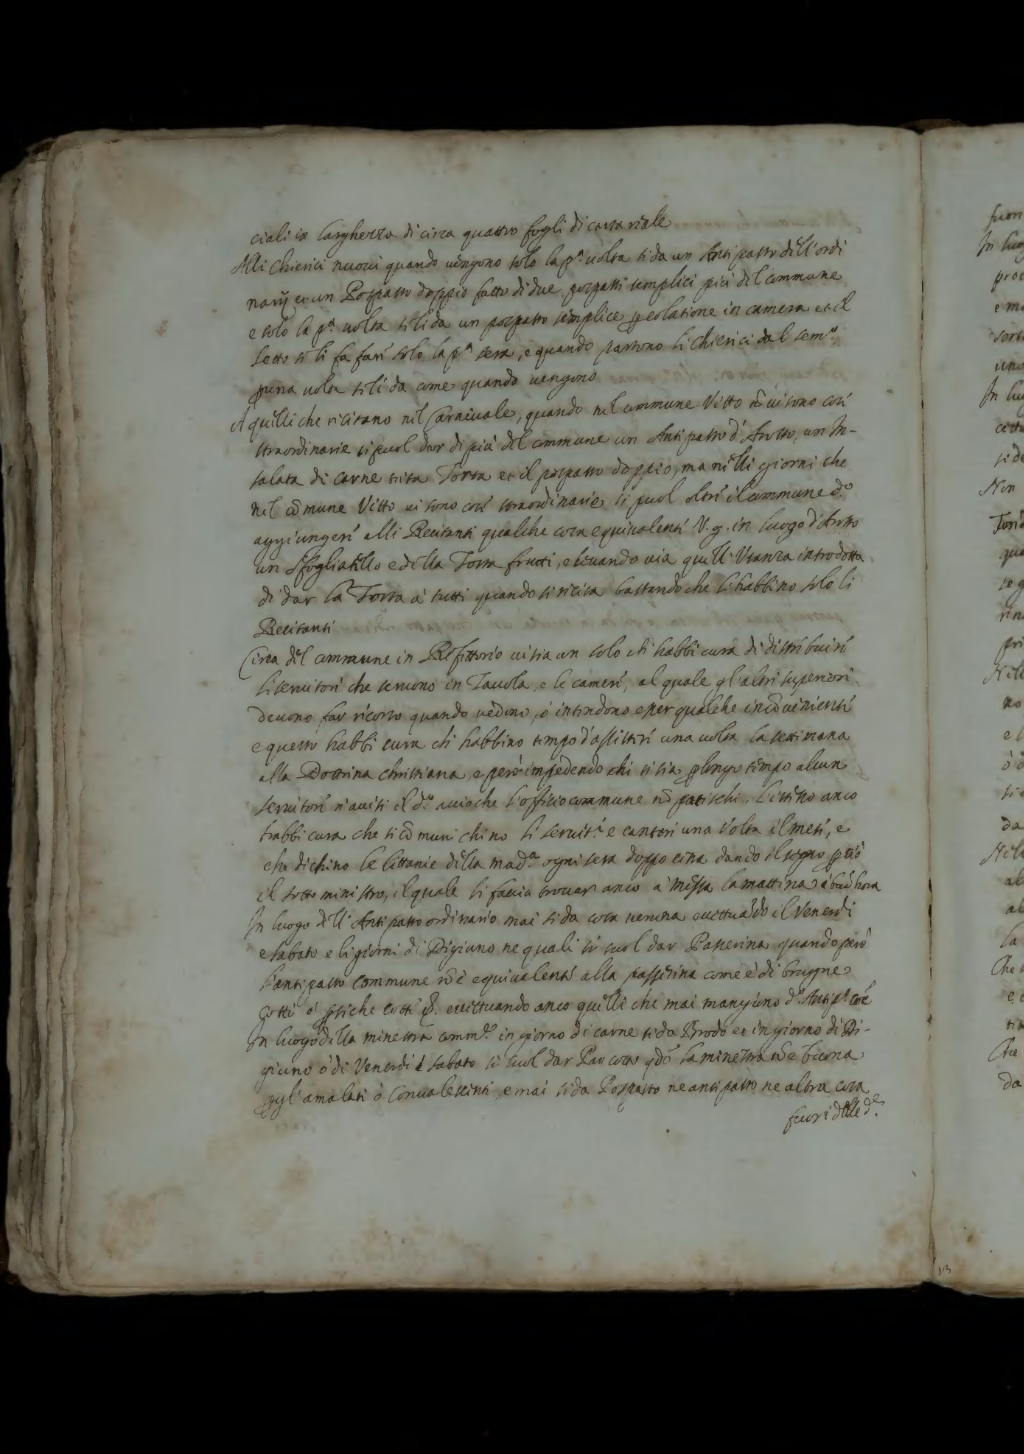 ciali in larghezza di circa quattro fogli di carta reale
Alli chierici nuovi quando vengono solo la pª volta si da un Antipasto dell'ordi
narij et un Pospasto doppio fatto di due pospasti semplici più del commune
e solo la pª volta se li da un pospasto semplice p colatione in camera et il
letto si li fa fare solo la pª sera, e quando partono li chierici dal semº
p una volta se li da come quando vengono
A quelli che recitano nel Carnevale, quando nel commune Vitto nō vi sono cose
straordinarie si puol dar di più del commune un Antipasto d'Arosto, un In-
salata di carne trita Torta et il pospasto doppio, ma nelli giorni che
nel cōmune Vitto vi sono cose straordinarie si puol oltre il commune dº
aggiungere alli Recitanti qualche cosa equivalente V. g. in luogo d'Arosto
un sfogliatello e della Torta frutti, e levando via quell'Usanza introdotta
di dar la Torta à tutti quando si recita bastando che l'habbino solo li
Recitanti
Circa del commune in Refittorio vi sia un solo ch habbi cura di distribuire
li servitori che servono in Tavola, e le camere, al quale gl'altri superiori
devono far ricorso quando vedono, ò intendono esser qualche incōveniente
e questo habbi cura ch habbino tempo d'assistere una volta la settimana
alla Dottrina christiana, e però impedendo chi si sia p longo tempo alcun
servitore n'avisi il dº accioche l'officio commune nō patischi. L'istesso anco
habbi cura che si cōmunichino li servitª e cantori una volta il mese, e
che dichino le littanie della madª ogni sera doppo cena dando il segno p ciò
il sotto ministro, il quale li faccia trovar anco à messa la mattina à buō hora
In luogo dell'Antipasto ordinario mai si da cosa veruna eccettuādo il Venerdi
e sabato e li giorni di Digiuno ne quali si suol dar Passerina quando però
l'antipasto commune nō è equivalente alla passerina come è di brugne
cotte ò persiche cotti &. eccettuando anco quelli che mai mangiano dº Antipº
In luogo della minestra commᵉ in giorno di carne si da Brodo et in giorno di Di-
giuno ò di Venerdi è sabato si suol dar Pan cotto qdō la minestra nō è buona
p gl'amalati ò Convalescenti, e mai si da Pospasto ne antipasto ne altra cosa
fuori delle dᵉ.